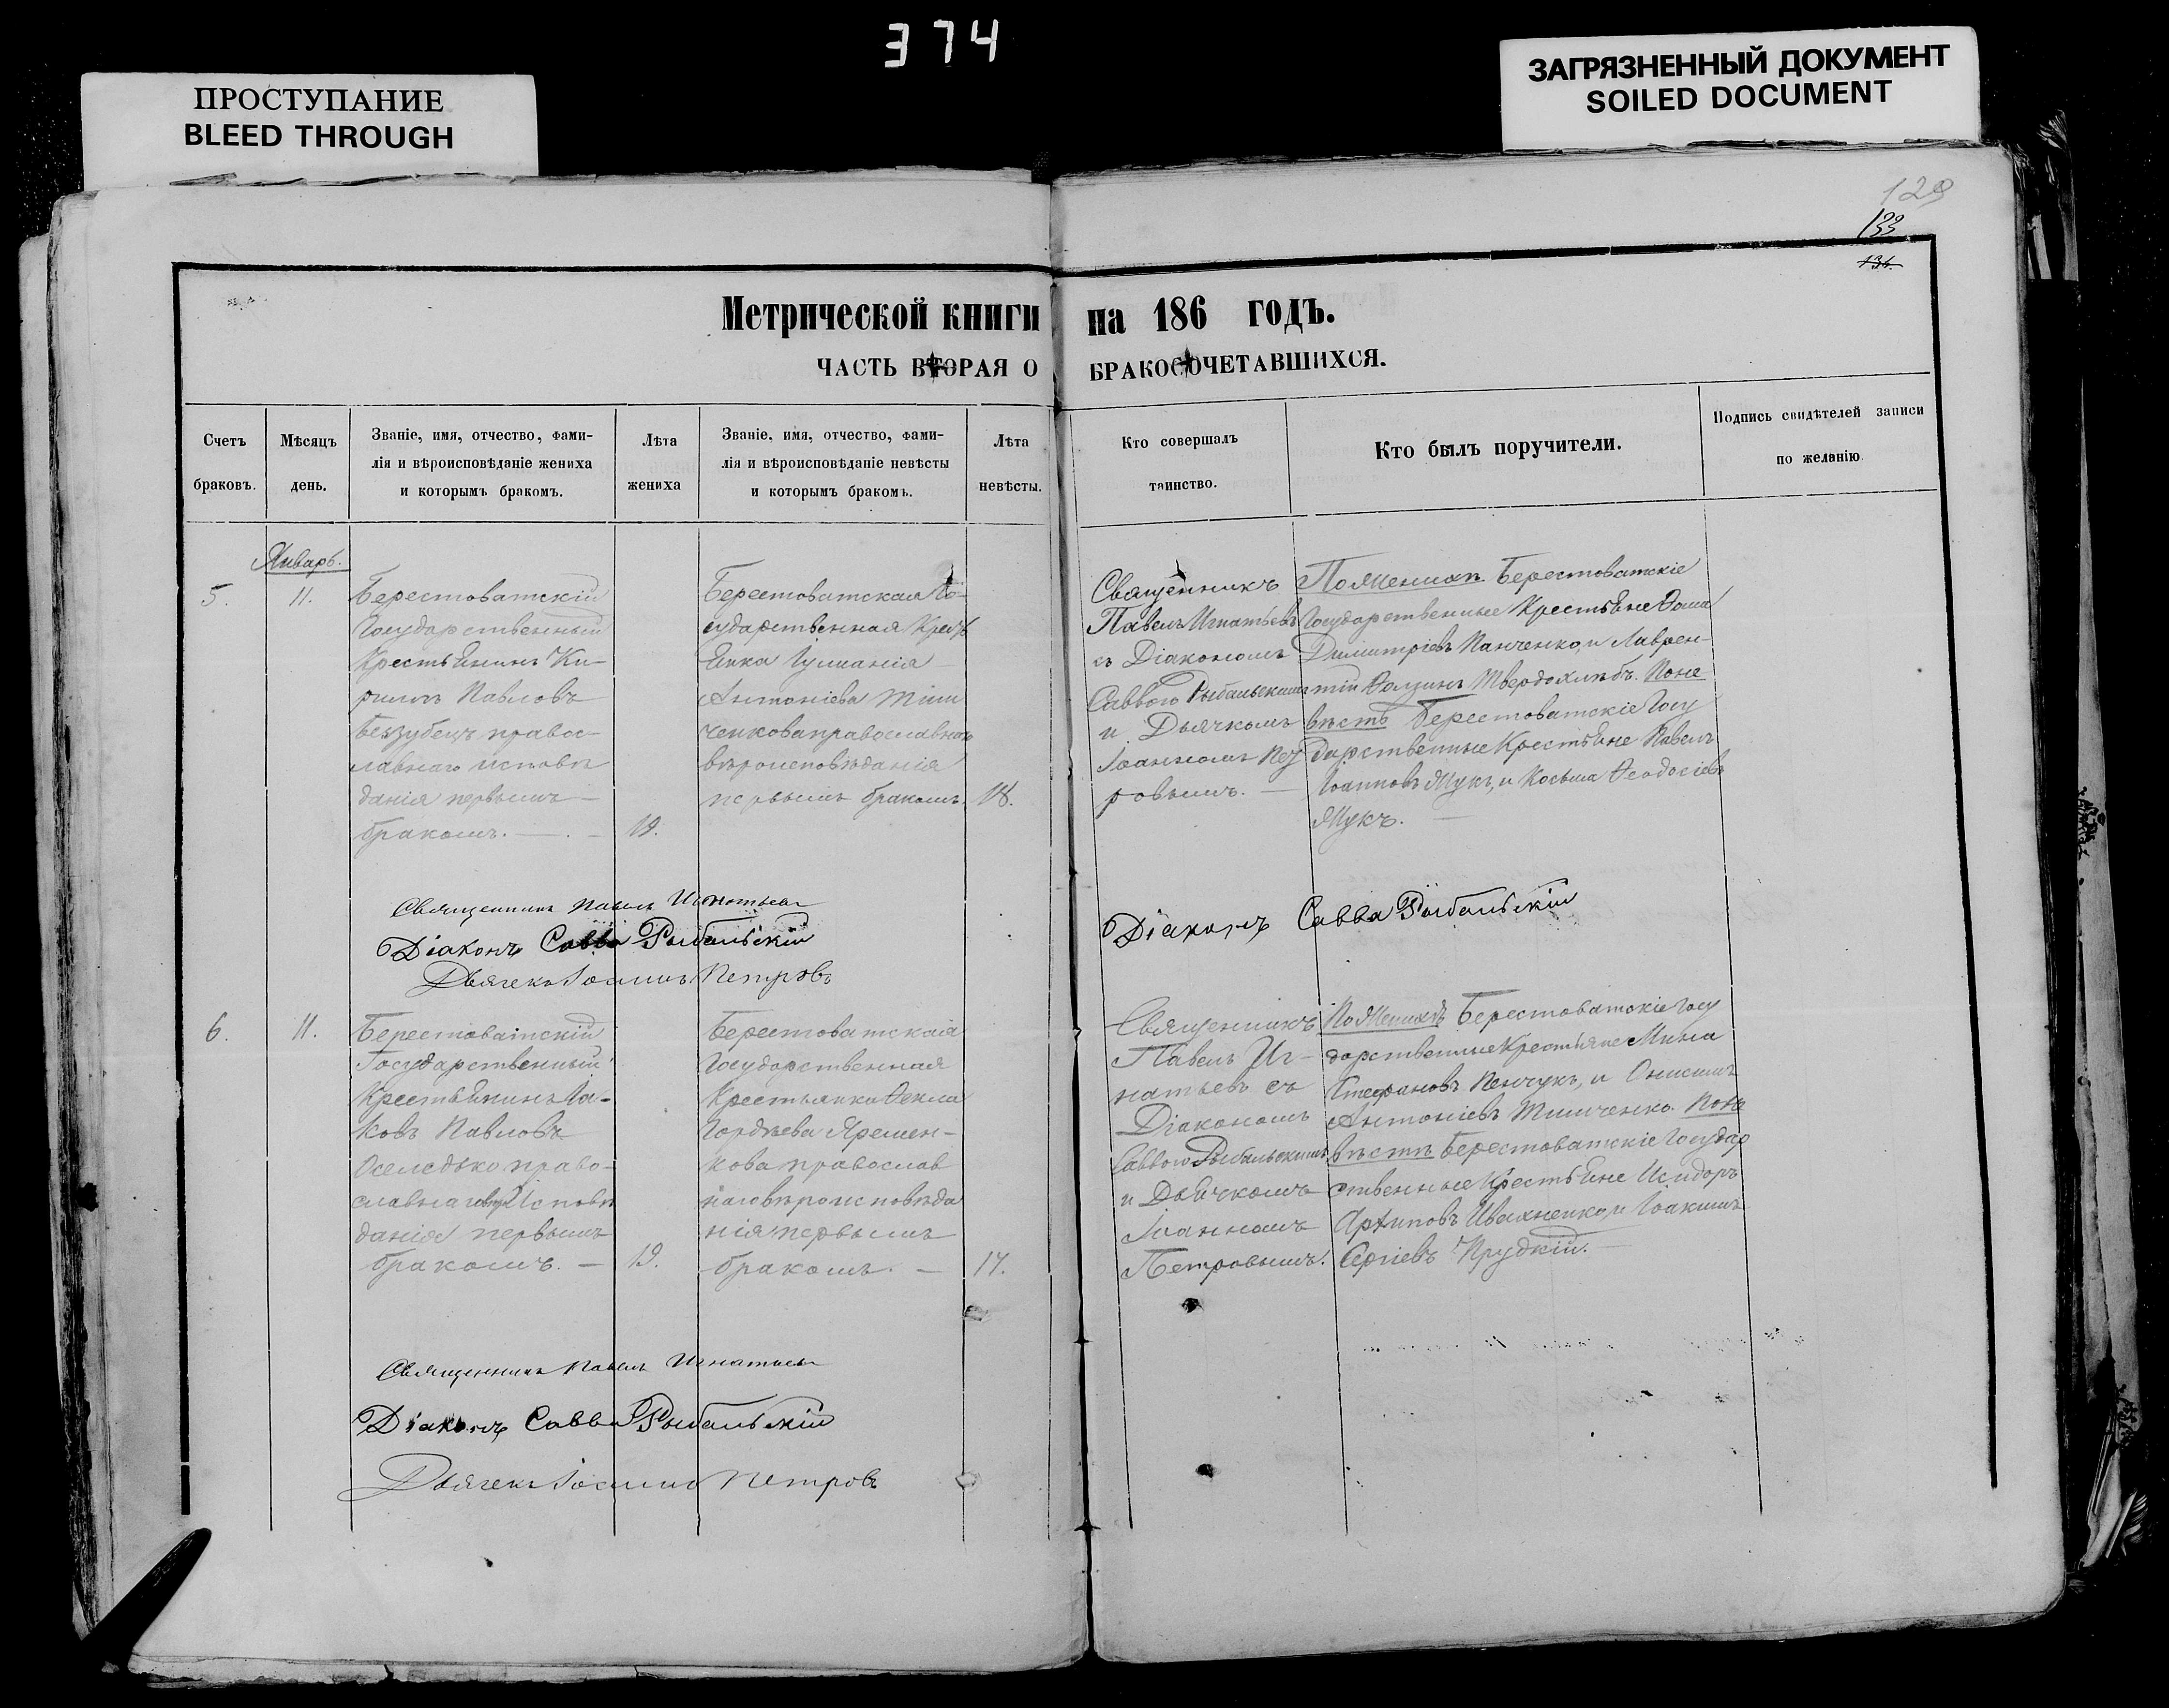 374
ПРОСТУПАНИЕ
BLEED THROUGH
ЗАГРЯЗНЕННЫЙ ДОКУМЕНТ
SOILED DOCUMENT
129
133
Метрической книги на 186 годъ.
ЧАСТЬ ВТОРАЯ О БРАКОСОЧЕТАВШИХСЯ.
Счетъ
браковъ.
Мѣсяцъ
день.
Званіе, имя, отчество, фами-
лія и вѣроисповѣданіе жениха
и которымъ бракомъ.
Лѣта
жениха
Званіе, имя, отчество, фами-
лія и вѣроисповѣданіе невѣсты
и которымъ бракомъ.
Лѣта
невѣсты.
Кто совершалъ
таинство.
Кто былъ поручители.
Подпись свидѣтелей записи
по желанію.
Январь.
5.
11.
Берестоватскій
Государственный
Крестьянинъ Ки-
риллъ Павловъ
Беззубецъ правос-
лавнаго исповѣ
данія первымъ
бракомъ.
19.
Берестоватская Го-
сударственная Крест
янка
Антоніева Тим
ченкова православнаго
вѣроисповѣданія
первымъ бракомъ.
18.
Священникъ
Павелъ Игнатьевъ
съ Діакономъ
Саввою Рыбальскимъ
и Дьячкомъ
Іоанномъ Пет
ровымъ.
По Женихѣ Берестоватскіе
Государственные Крестьяне Фома
Димитріевъ Панченко, и Лаврен-
тій Твердохлѣбъ. Поне
вѣстѣ Берестоватскіе Госу
дарственные Крестьяне Павелъ
Іоанновъ Мукъ, и Косьма Феодосіевъ
Мукъ.
Священникъ Павелъ Игнатьевъ
Діаконъ Савва Рыбальскій
Дьячекъ Іоаннъ Петровъ
Діаконъ Савва Рыбальскій
6.
11.
Берестоватскій
Государственный
Крестьянинъ Іа-
ковъ Павловъ
Оселедько право-
славнаго Исповѣ
данія первымъ
бракомъ.
19.
Берестоватская
Государственная
Крестьянка Фекла
Гордѣева Яремен-
кова православ
наго вѣроисповѣда
нія первымъ
бракомъ.
17.
Священникъ
Павелъ Иг-
натьевъ съ
Діакономъ
Саввою Рыбальскимъ
и Дьячкомъ
Іоанномъ
Петровымъ.
По Женихѣ Берестоватскіе Госу
дарственные Крестьяне Мина
Стефановъ Пенчукъ, и Онисимъ
Антоніевъ Тимченко. Поне
вѣстѣ Берестоватскіе Государ
ственные Крестьяне Исидоръ
Архиповъ Ивахненко, и Іоакимъ
Сергіевъ Прудкій.
Священникъ Павелъ Игнатьевъ
Діаконъ Савва Рыбальскій
Дьячекъ Іоаннъ Петровъ